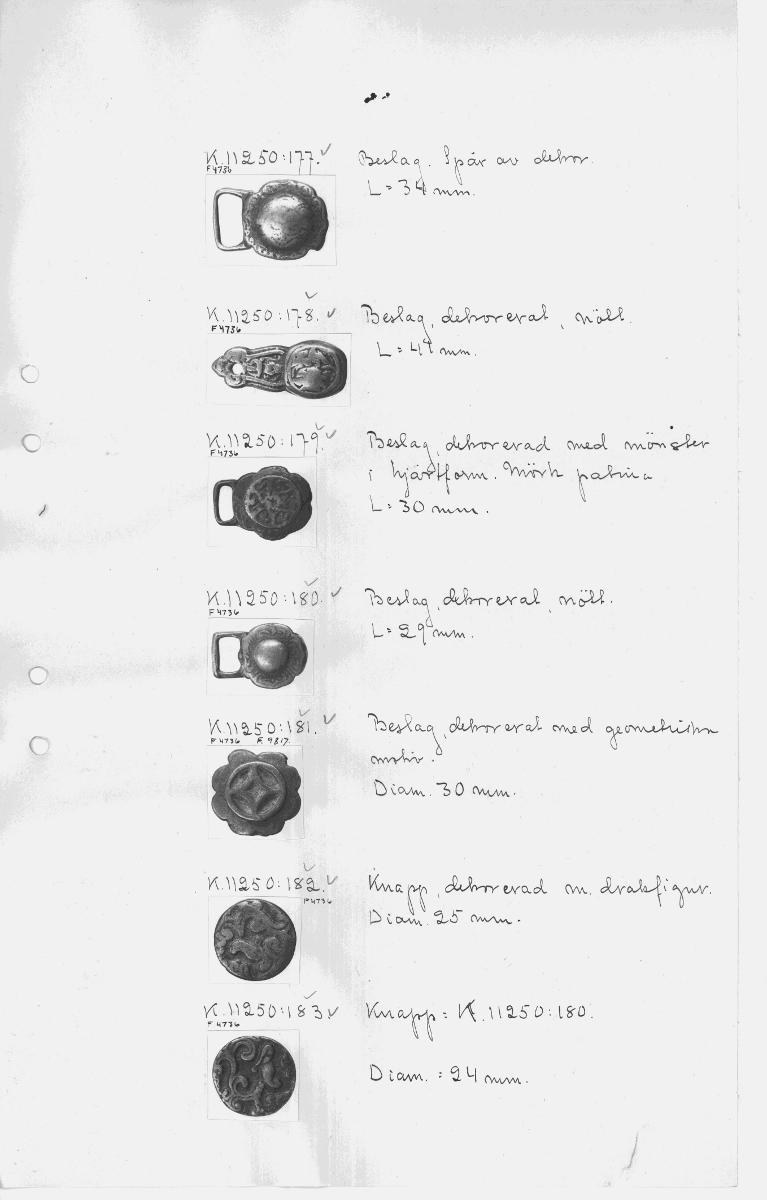 K.11250:177. Beslag. Spår av dekor.
F4736
L = 34 mm.
K.11250:178. Beslag, dekorerat, nött.
F4736
L = 49 mm.
K.11250:179. Beslag, dekorerad med mönster
F4736
i hjärtform. Mörk patina
L = 30 mm.
K.11250:180. Beslag, dekorerat, nött.
F4736
L = 29 mm.
K.11250:181. Beslag, dekorerat med geometriska
F4736 F.9817.
motiv.
Diam. 30 mm.
K.11250:182. Knapp, dekorerad m. drakfigur.
F4736
Diam. 25 mm.
K.11250:183. Knapp = K.11250:180.
F4736
Diam. = 24 mm.